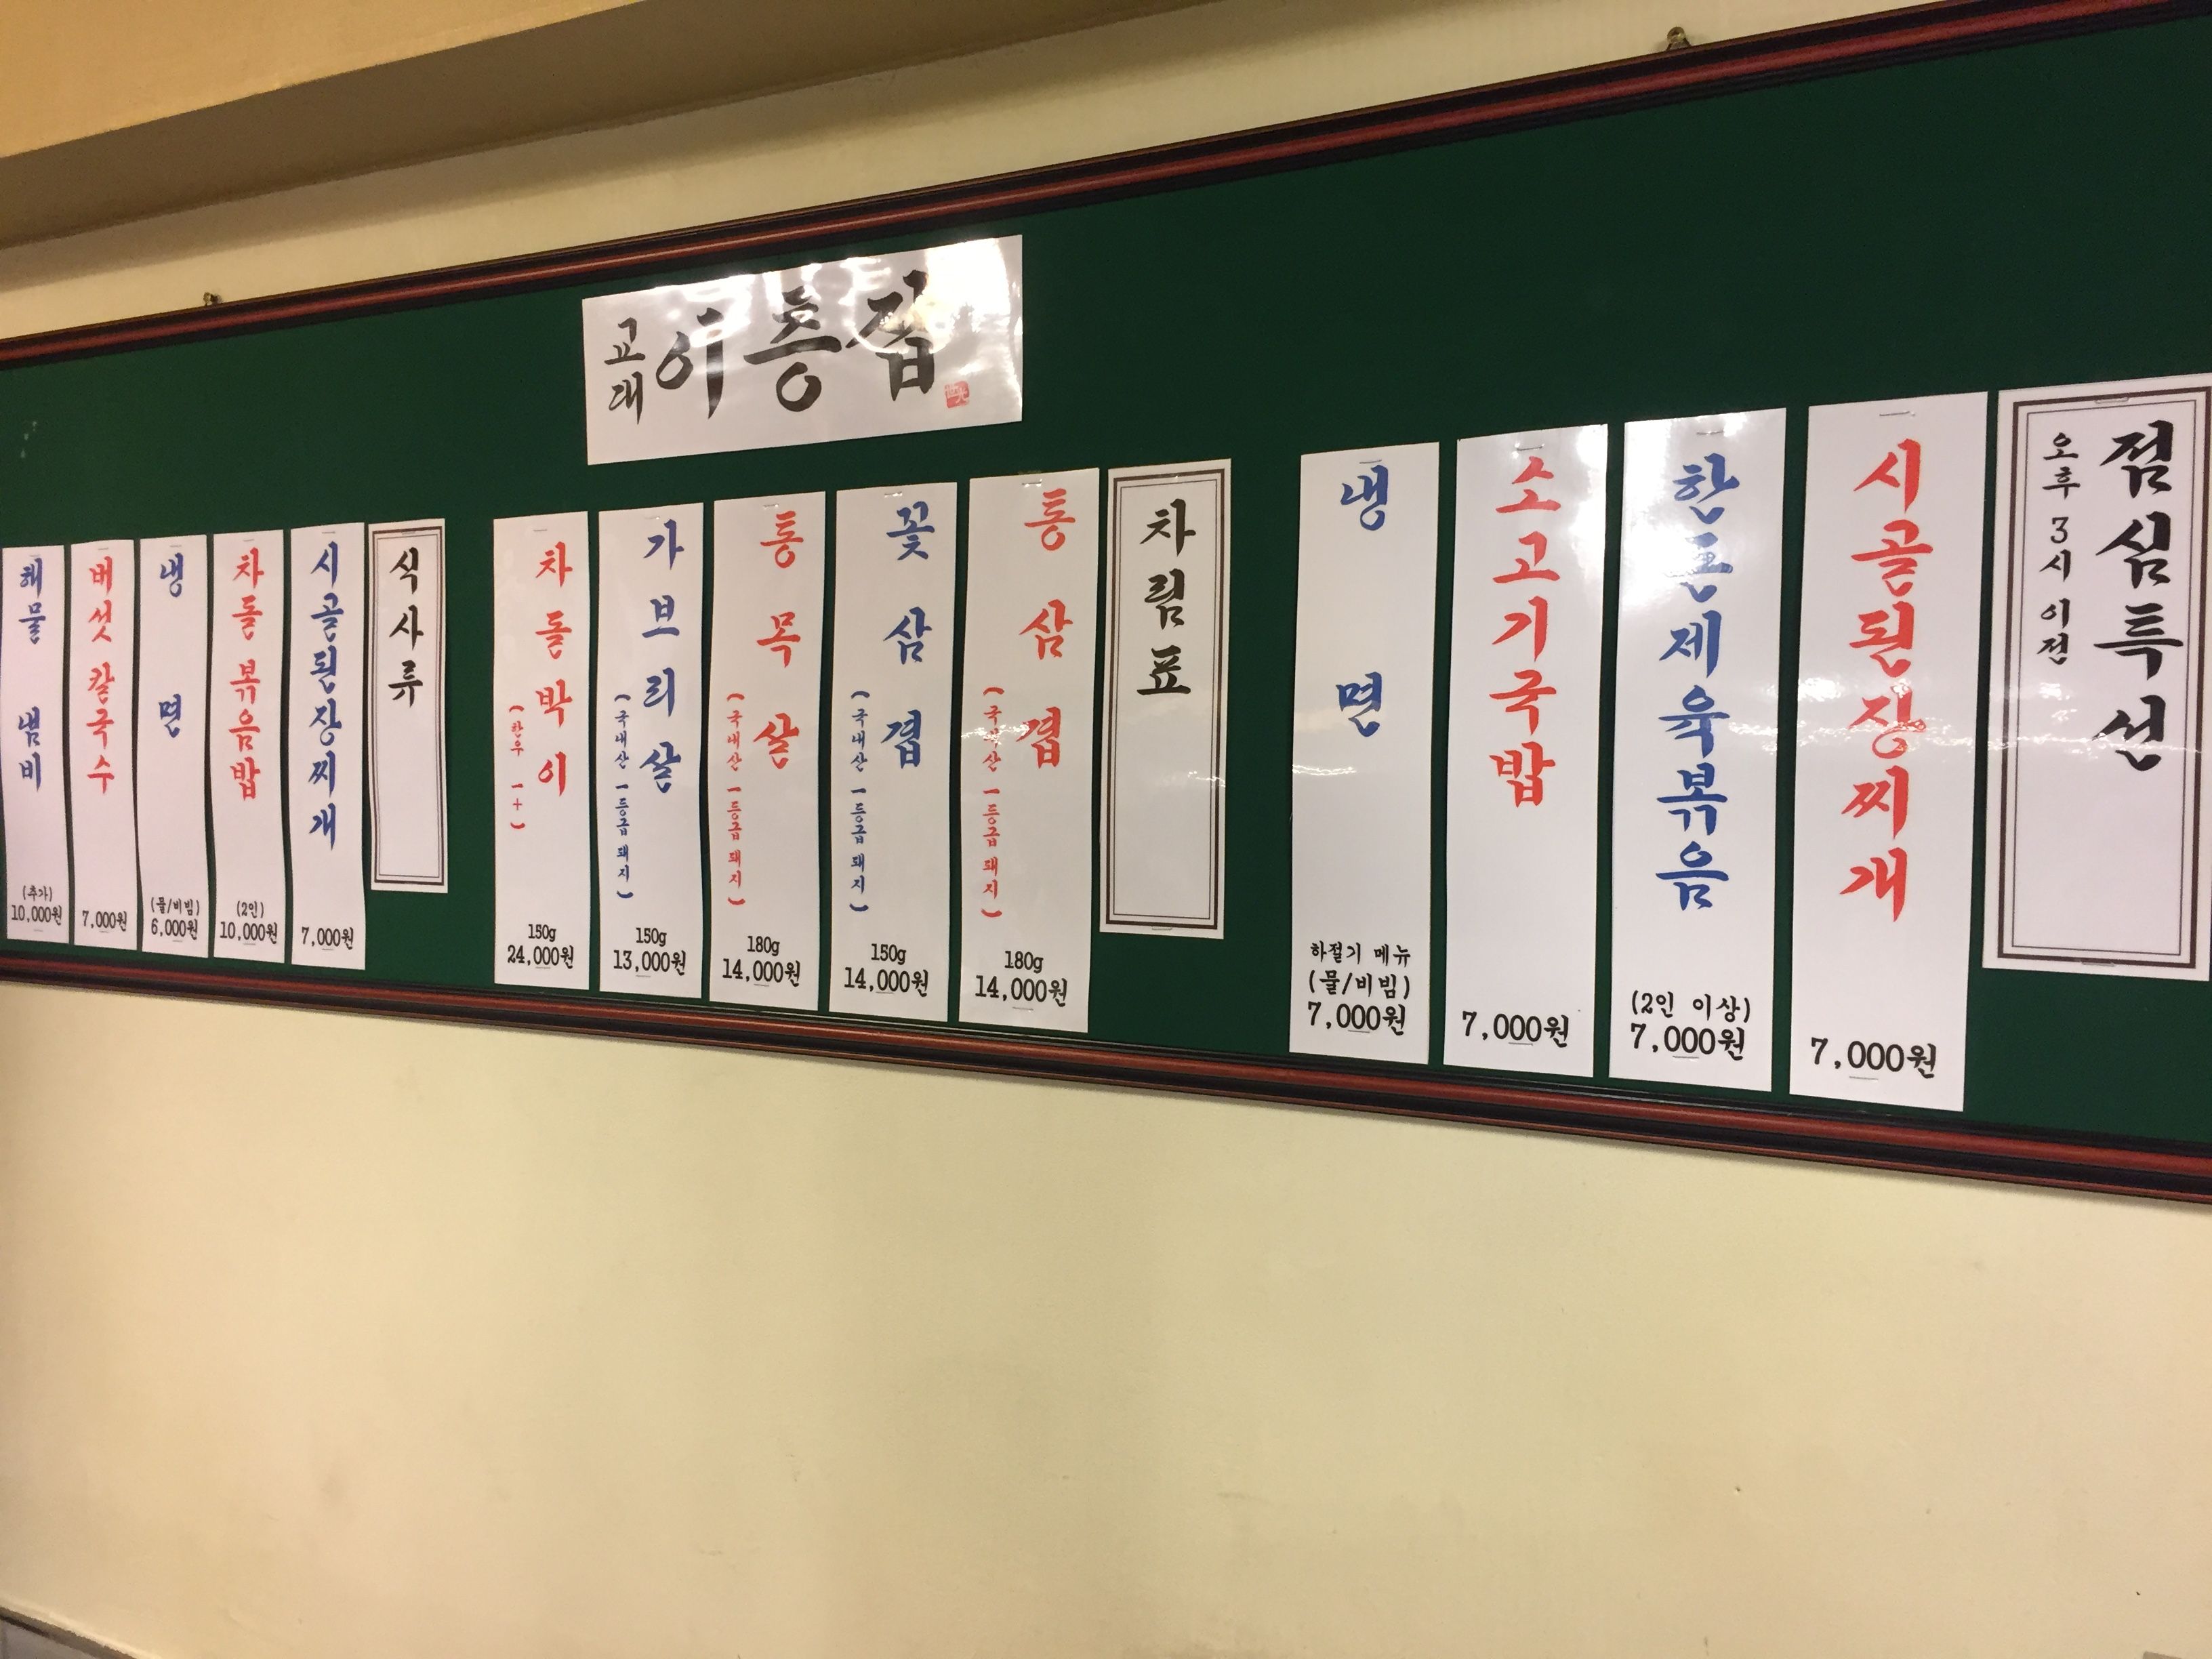 고대 이층집
점심특선
오후 3시 이전
시골된장찌개
7,000원
한돈제육볶음
(2인 이상)
7,000원
소고기국밥
7,000원
냉면
하절기 메뉴
(물/비빔)
7,000원
차림표
통삼겹
(국내산 一등급 돼지)
180g
14,000원
꽃삼겹
(국내산 一등급 돼지)
150g
14,000원
통목살
(국내산 一등급 돼지)
180g
14,000원
가브리살
(국내산 一등급 돼지)
150g
13,000원
차돌박이
(한우 一+)
150g
24,000원
식사류
시골된장찌개
7,000원
차돌볶음밥
(2인)
10,000원
냉면
(물/비빔)
6,000원
버섯칼국수
7,000원
해물냄비
(추가)
10,000원